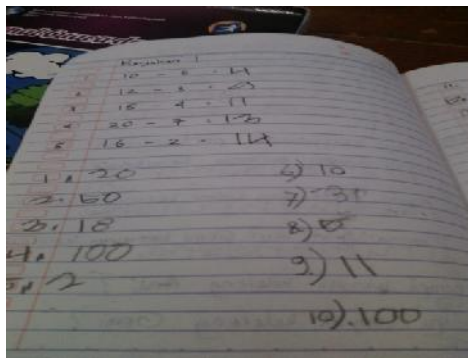 Kerjakan
1 10 - 6 = 4
2 12 - 3 =
3 15 - 4 = 11
4 20 - 7 = 13
5 16 - 2 = 14
1. 20
2. 60
3. 18
4. 100
5. 2
6) 10
7) 31
8)
9.) 11
10). 100